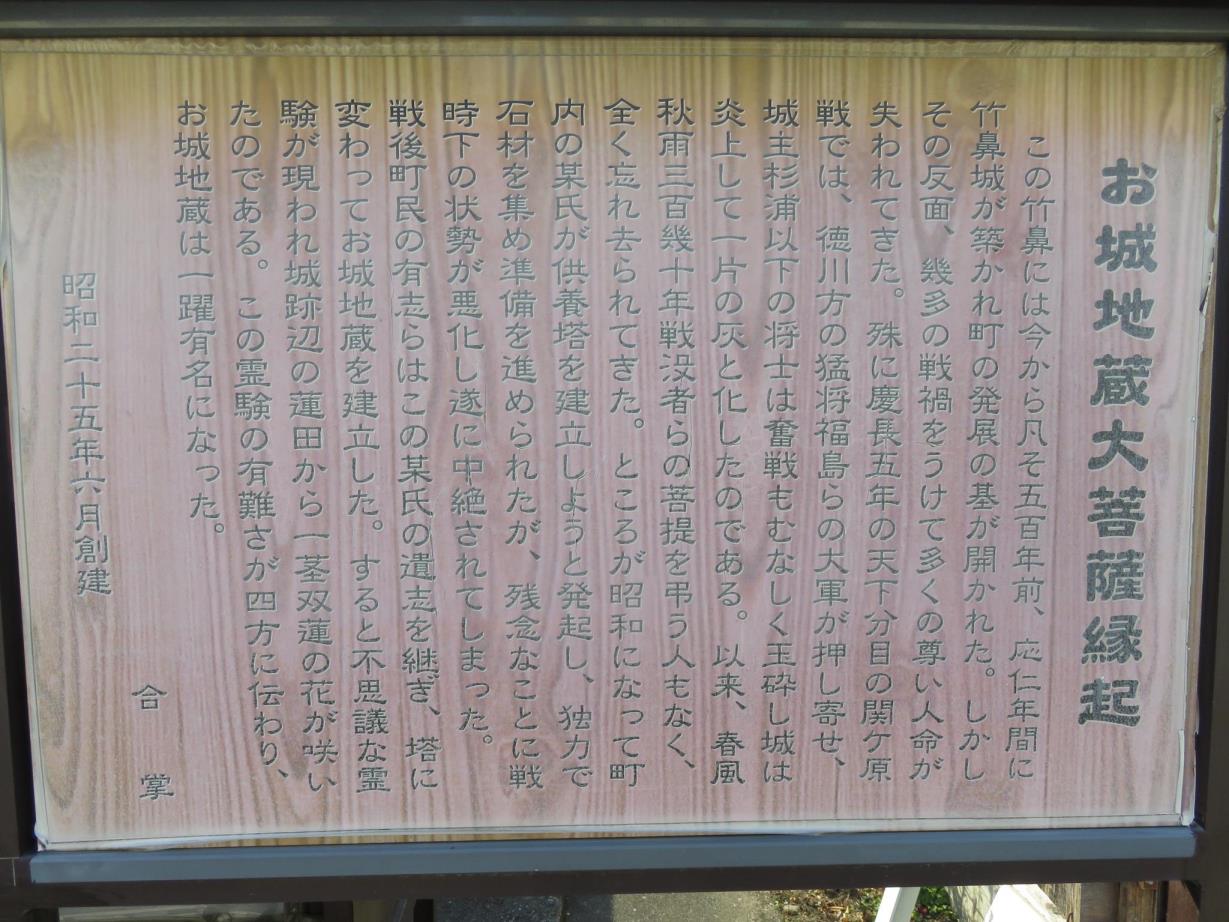 お城地蔵大菩薩縁起
この竹鼻には今から凡そ五百年前、応仁年間に
竹鼻城が築かれ町の発展の基が開かれた。しかし
その反面、幾多の戦禍をうけて多くの尊い人命が
失われてきた。殊に慶長五年の天下分目の関ケ原
戦では、徳川方の猛将福島らの大軍が押し寄せ、
城主杉浦以下の将士は奮戦もむなしく玉砕し城は
炎上して一片の灰と化したのである。以来、春風
秋雨三百幾十年戦没者らの菩提を弔う人もなく、
全く忘れ去られてきた。ところが昭和になって町
内の某氏が供養塔を建立しようと発起し、独力で
石材を集め準備を進められたが、残念なことに戦
時下の状勢が悪化し遂に中絶されてしまった。
戦後町民の有志らはこの某氏の遺志を継ぎ、塔に
変わってお城地蔵を建立した。すると不思議な霊
験が現われ城跡辺の蓮田から一茎双蓮の花が咲い
たのである。この霊験の有難さが四方に伝わり、
お城地蔵は一躍有名になった。
合掌
昭和二十五年六月創建